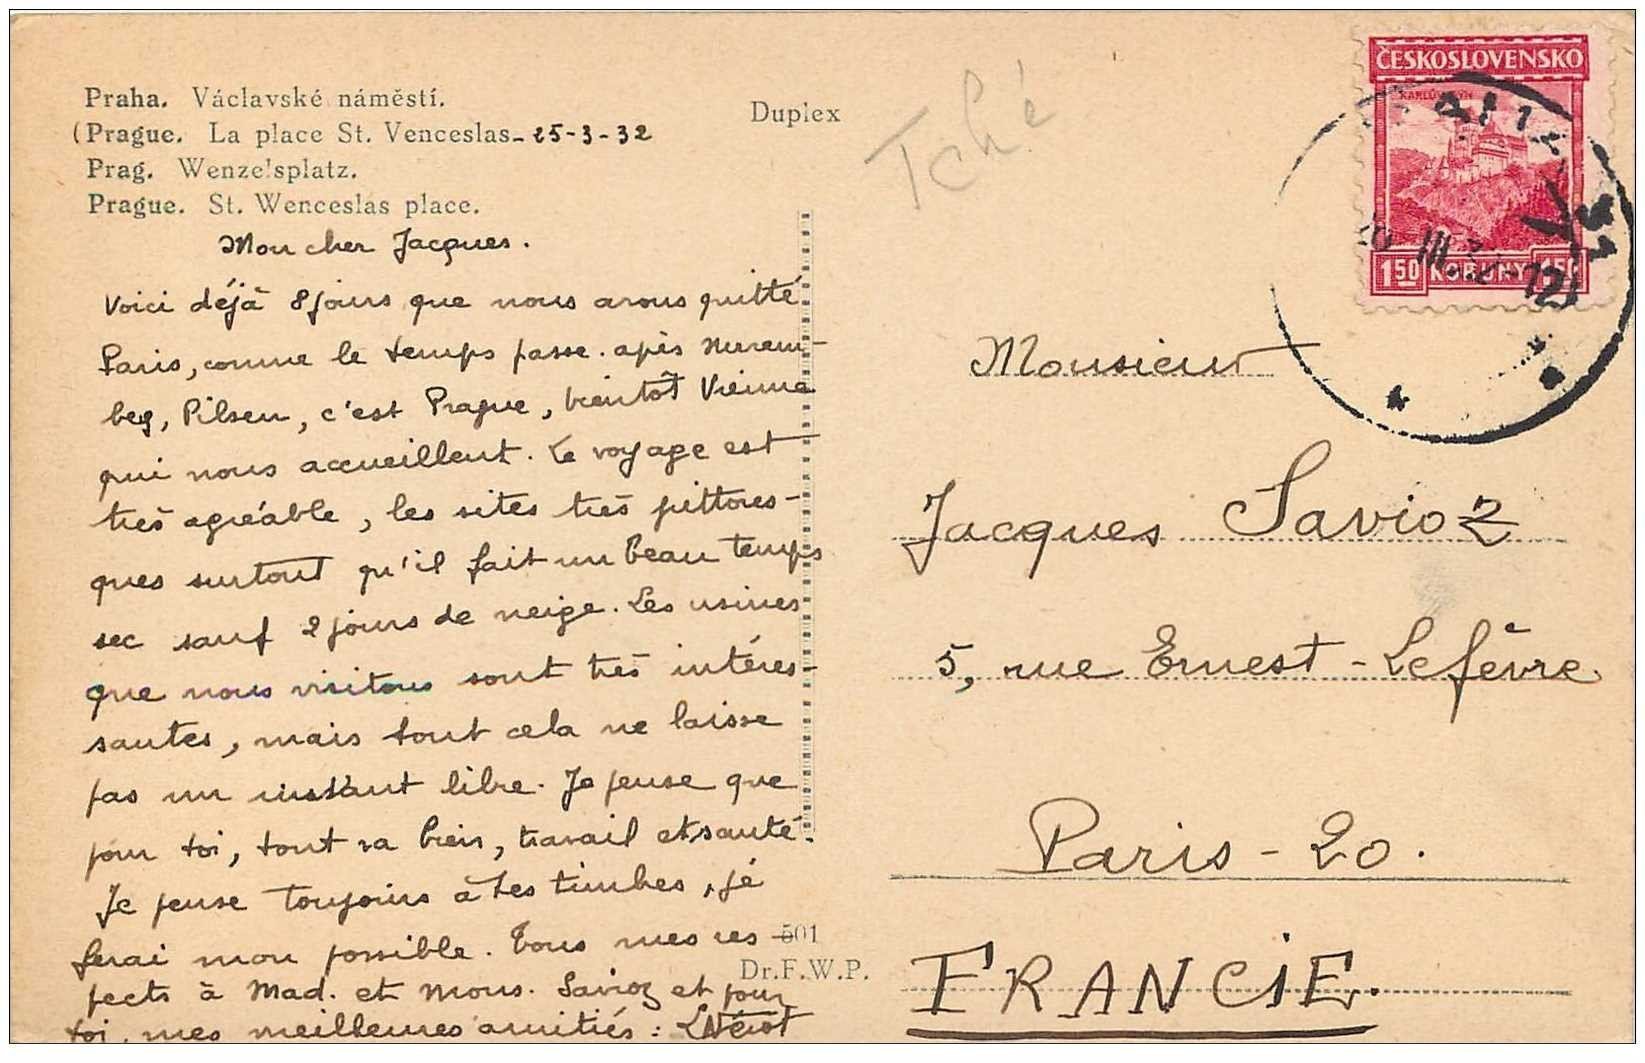 Praha. Václavské náměstí.
(Prague. La place St. Venceslas - 25-3-32
Prag. Wenzelsplatz.
Prague. St. Wenceslas place.
Duplex
Tché
Mon cher Jacques.
Voici déjà 8 jours que nous avons quitté
Paris, comme le temps passe. après Nurem-
beg, Pilsen, c'est Prague, bientôt Vienne
qui nous accueillent. Le voyage est
très agréable, les sites très pittores-
ques surtout qu'il fait un beau temps
sec sauf 2 jours de neige. Les usines
que nous visitons sont très intéres-
santes, mais tout cela ne laisse
pas un instant libre. Je pense que
pour toi, tout va bien, travail et santé.
Je pense toujours à tes timbes, je
ferai mon possible. Tous mes res-
pects à Mad. et Mons. Savioz et pour
toi, mes meilleures amitiés :
501
Dr.F.W.P.
ČESKOSLOVENSKO
KARLŮV TÝN
1.50 KORUNY 1.50
Monsieur
Jacques Savioz
5, rue Ernest-Lefèvre
Paris-20.
FRANCIE.